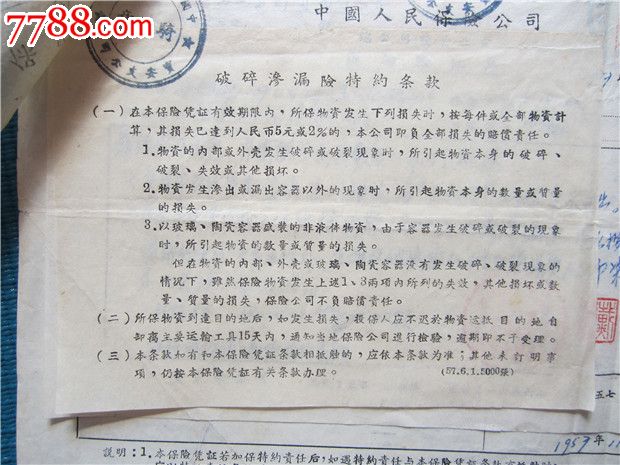 7788.com
中國人民保險公司
破碎滲漏險特約条款
(一)在本保險凭証有效期限内，所保物資发生下列損失时，按每件或全部物資計
算，其損失已達到人民币5元或2%的，本公司即負全部損失的賠償責任。
1.物資的内部或外壳发生破碎或破裂现象时，所引起物資本身的破碎、
破裂、失效或其他損坏。
2.物資发生滲出或漏出容器以外的现象时，所引起物資本身的数量或質量
的損失。
3.以玻璃、陶瓷容器盛裝的非液体物資，由于容器发生破碎或破裂的现象
时，所引起物資的数量或質量的損失。
但在物資的内部、外壳或玻璃、陶瓷容器没有发生破碎、破裂现象的
情况下，雖然保險物資发生上述1、3兩項内所列的失效，其他損坏或数
量、質量的損失，保險公司不負賠償責任。
(二)所保物資到達目的地后，如发生損失，投保人应不迟於物資运抵目的地自
卸离主要运輸工具15天内，通知当地保險公司进行檢驗，逾期即不予受理。
(三)本条款如有和本保險凭証条款相抵触的，应依本条款为准；其他未訂明事
項，仍按本保險凭証有关条款办理。
(57.6.1.5000張)
七五
1957年11
説明：1.本保險凭証若加保特約責任后，如遇特約責任与本保險凭証条款有抵触的